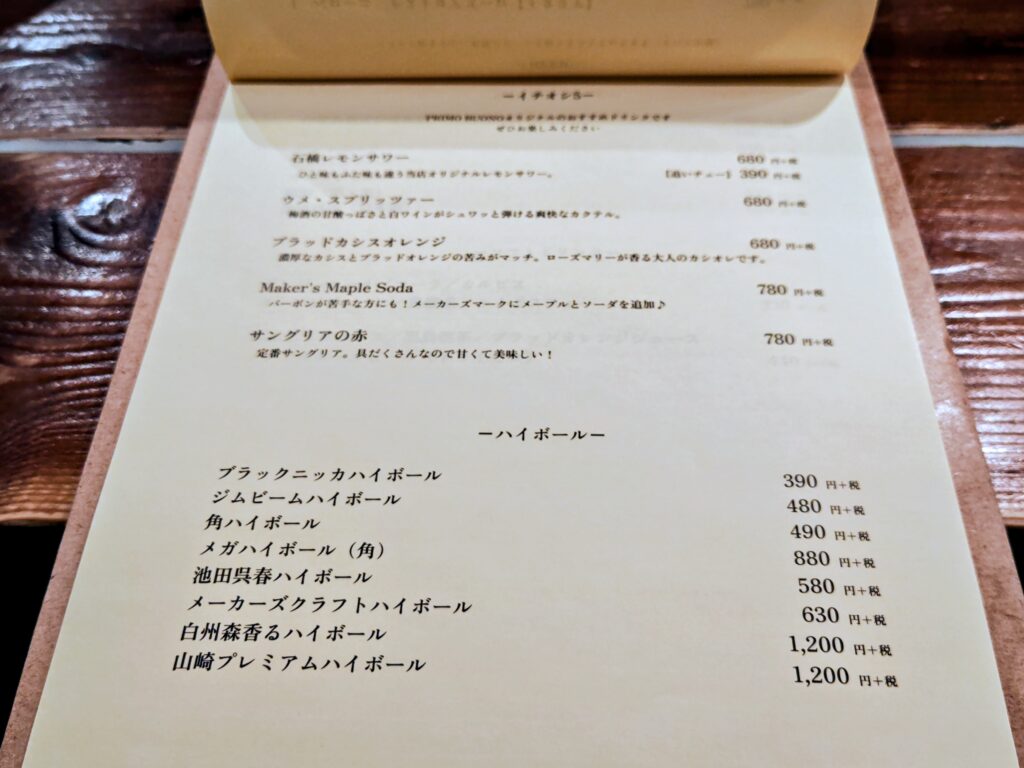 －イチオシ5－
PRIMO BUONOオリジナルのおすすめドリンクです
ぜひお楽しみください
石橋レモンサワー 680 円＋税
ひと味もふた味も違う当店オリジナルレモンサワー。 【追いチュー】 390 円＋税
ウメ・スプリッツァー 680 円＋税
梅酒の甘酸っぱさと白ワインがシュワッと弾ける爽快なカクテル。
ブラッドカシスオレンジ 680 円＋税
濃厚なカシスとブラッドオレンジの苦みがマッチ。ローズマリーが香る大人のカシオレです。
Maker's Maple Soda 780 円＋税
バーボンが苦手な方にも！メーカーズマークにメープルとソーダを追加♪
サングリアの赤 780 円＋税
定番サングリア。具だくさんなので甘くて美味しい！
－ハイボール－
ブラックニッカハイボール 390 円＋税
ジムビームハイボール 480 円＋税
角ハイボール 490 円＋税
メガハイボール（角） 880 円＋税
池田呉春ハイボール 580 円＋税
メーカーズクラフトハイボール 630 円＋税
白州森香るハイボール 1,200 円＋税
山崎プレミアムハイボール 1,200 円＋税